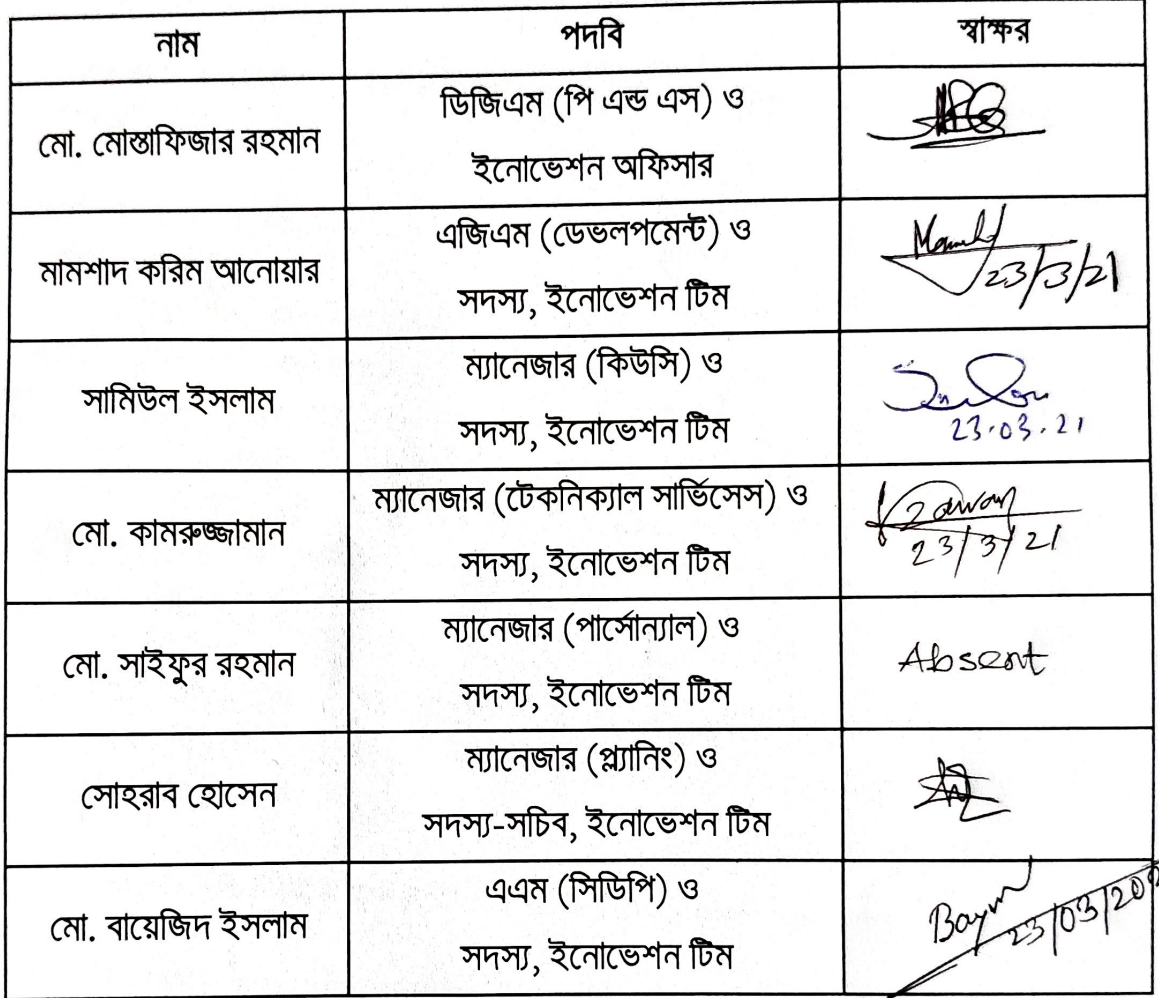 নাম পদবি স্বাক্ষর
মো. মোস্তাফিজার রহমান
ডিজিএম (পি এন্ড এস) ও
ইনোভেশন অফিসার
মামশাদ করিম আনোয়ার
এজিএম (ডেভলপমেন্ট) ও
সদস্য, ইনোভেশন টিম
23/3/21
সামিউল ইসলাম
ম্যানেজার (কিউসি) ও
সদস্য, ইনোভেশন টিম
23.03.21
মো. কামরুজ্জামান
ম্যানেজার (টেকনিক্যাল সার্ভিসেস) ও
সদস্য, ইনোভেশন টিম
23/3/21
মো. সাইফুর রহমান
ম্যানেজার (পার্সোন্যাল) ও
সদস্য, ইনোভেশন টিম
Absent
সোহরাব হোসেন
ম্যানেজার (প্ল্যানিং) ও
সদস্য-সচিব, ইনোভেশন টিম
মো. বায়েজিদ ইসলাম
এএম (সিডিপি) ও
সদস্য, ইনোভেশন টিম
23/03/202